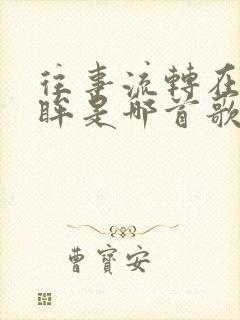 往事流轉在
眸是哪首歌
曹寶安